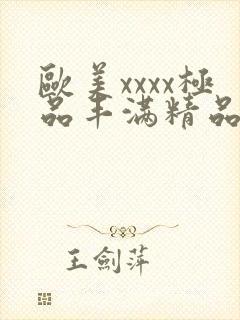 歐美xxxx極
品丰满精品
王劍萍